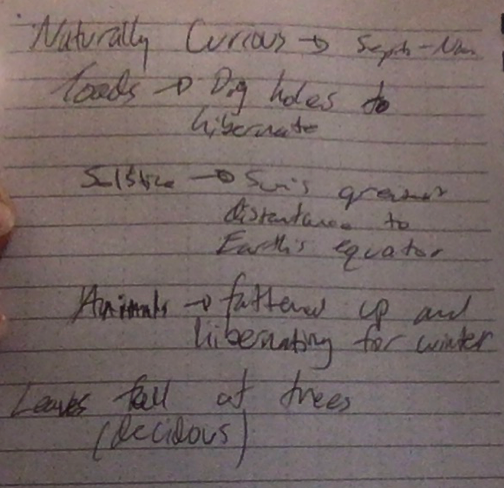 Naturally Curious → Sept-Nov
Toads → Dig holes to
hibernate
Solstice → Sun's greatest
distance to
Earth's equator
Animals → fattened up and
hibernating for winter
Leaves fall of trees
(decidous)